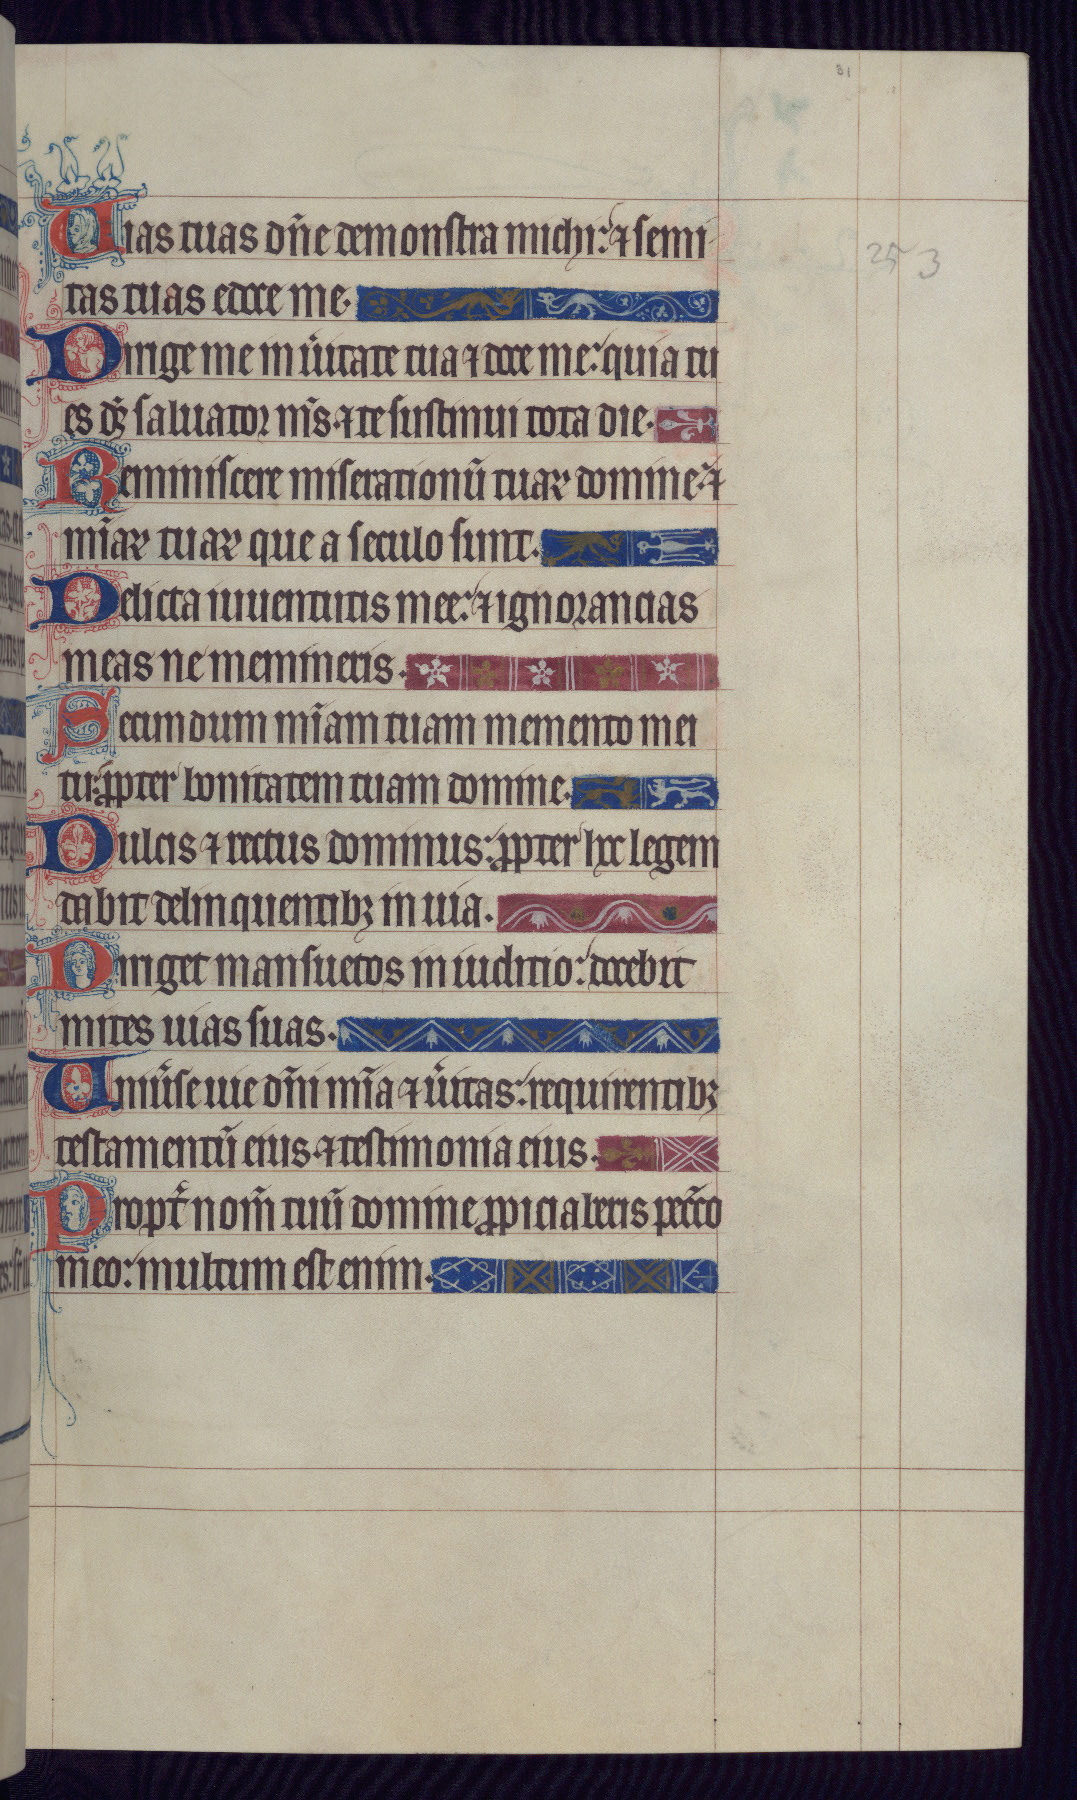 31
25 3
Uias tuas dn̄e demonstra michi: ⁊ semi
tas tuas edoce me.
Dirige me in ũitate tua ⁊ doce me: quia tu
es ds̄ saluator nr̄s. ⁊ te sustinui tota die.
Reminiscere miserationū tuaꝝ domine: ⁊
mīaꝝ tuaꝝ que a seculo sunt.
Delicta iuuentutis mee: ⁊ ignorancias
meas ne memineris.
Secundum mīam tuam memento mei
tu: ꝓpter bonitatem tuam domine.
Dulcis ⁊ rectus dominus: ꝓpter hoc legem
dabit delinquentibꝫ in uia.
Diriget mansuetos in iudicio: docebit
mites uias suas.
Uniũse uie dn̄i mīa ⁊ ũitas: requirentibꝫ
testamentū eius ⁊ testimonia eius.
Propt̄ nom̄ tuū domine ꝓpiciaberis pecc̄o
meo: multum est enim.